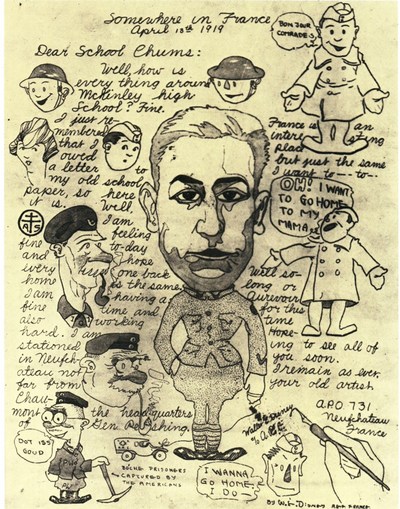 Somewhere in France
April 13th 1919
Dear School Chums:
Well, how is
every thing around
McKinley high
School? Fine.
I just re-
membered
that I
owed
a letter
my old school
paper, so here
it is.
Well
I am
feeling
fine
to-day
and
hope
every
one back
home
is the same
I am
having a
fine
time and
also
working
hard. I am
stationed
in Neufch-
ateau not
far from
Chau-
mont
of
the headquarters
Gen Pershing.
BON JOUR
COMRADE-S
France is an
inter sting
place
but just the same
I want to -- to--
OH! I WANT
TO GO HOME
TO MY
MAMA
Well so-
long or
Aurivoir
for this
time
Hope-
ing to see all of
you soon.
I remain as ever
your old artist
Walter Disney
A.P.O 731
Neufchateau
France
DOT ISS
GOUD
BOCHE PRISONERS
CAPTURED BY
THE AMERICANS
I WANNA
GO HOME
I DO—
BY W.E. DISNEY